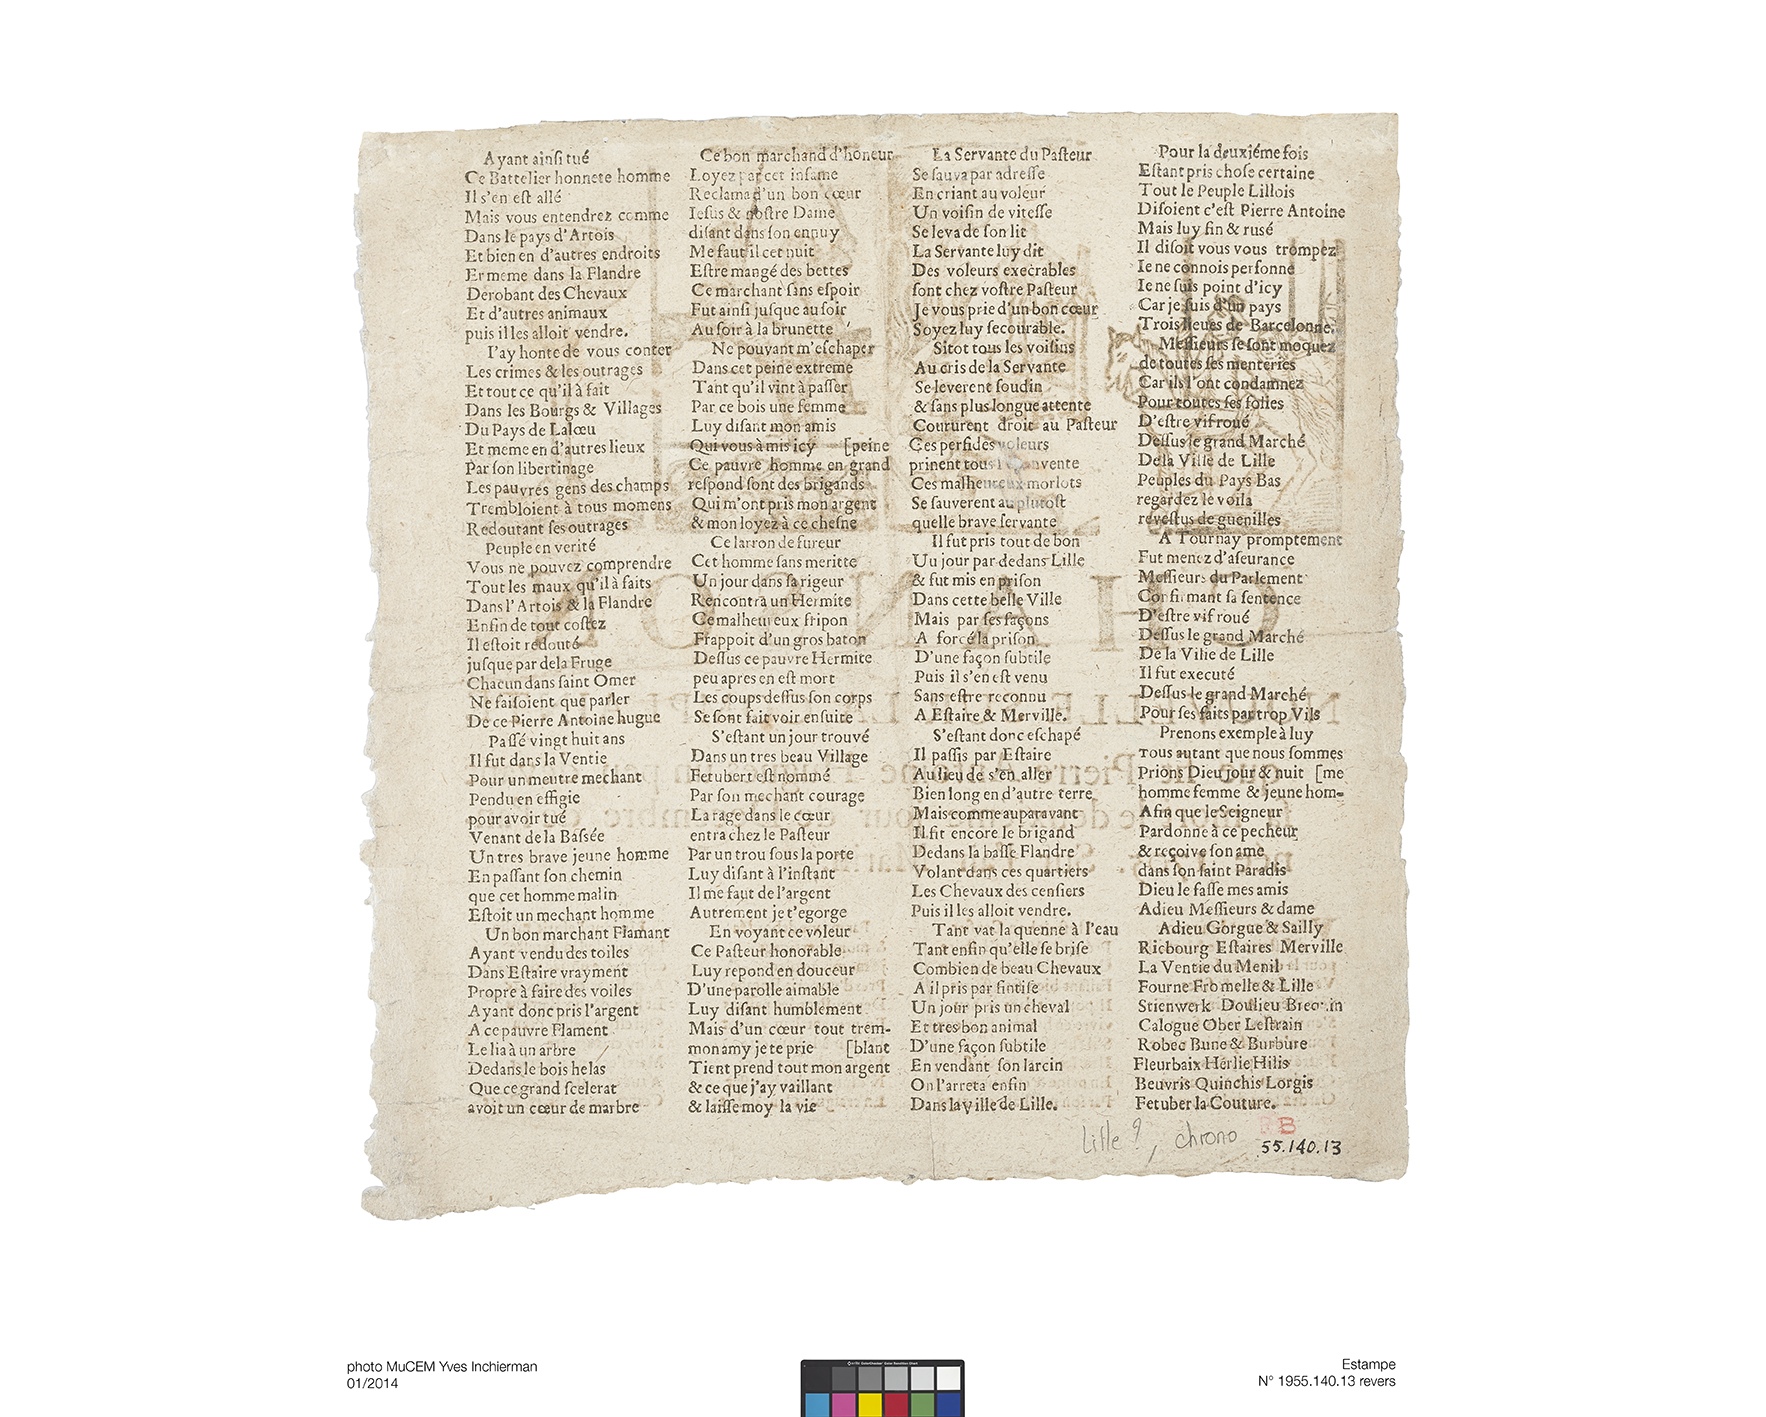 Ayant ainſi tué
Ce Battelier honnete homme
Il s'en eſt allé
Mais vous entendrez comme
Dans le pays d'Artois
Et bien en d'autres endroits
Et meme dans la Flandre
Derobant des Chevaux
Et d'autres animaux
puis il les alloit vendre.
I'ay honte de vous conter
Les crimes & les outrages
Et tout ce qu'il à fait
Dans les Bourgs & Villages
Du Pays de Lalœu
Et meme en d'autres lieux
Par ſon libertinage
Les pauvres gens des champs
Trembloient à tous momens
Redoutant ſes outrages
Peuple en verité
Vous ne pouvez comprendre
Tout les maux qu'il à faits
Dans l'Artois & la Flandre
Enfin de tout coſtez
Il eſtoit redouté
juſque par dela Fruge
Chacun dans ſaint Omer
Ne faiſoient que parler
De ce Pierre Antoine hugue
Paſſé vingt huit ans
Il fut dans la Ventie
Pour un meutre mechant
Pendu en effigie
pour avoir tué
Venant de la Baſsée
Un tres brave jeune homme
En paſſant ſon chemin
que cet homme malin
Eſtoit un mechant homme
Un bon marchant Flamant
Ayant vendu des toiles
Dans Eſtaire vrayment
Propre à faire des voiles
Ayant donc pris l'argent
A ce pauvre Flament
Le lia à un arbre
Dedans le bois helas
Que ce grand ſcelerat
avoit un cœur de marbre
Ce bon marchand d'honeur
Loyez par cet infame
Reclama d'un bon cœur
Ieſus & noſtre Dame
diſant dans ſon ennuy
Me faut il cet nuit
Eſtre mangé des bettes
Ce marchant ſans eſpoir
Fut ainſi juſque au ſoir
Au ſoir à la brunette
Ne pouvant m'eſchaper
Dans cet peine extreme
Tant qu'il vint à paſſer
Par ce bois une femme
Luy diſant mon amis
Qui vous à mis icy [peine
Ce pauvre homme en grand
reſpond ſont des brigands
Qui m'ont pris mon argent
& mon loyez à ce cheſne
Ce larron de fureur
Cet homme ſans meritte
Un jour dans ſa rigeur
Rencontra un Hermite
Ce malheureux fripon
Frappoit d'un gros baton
Deſſus ce pauvre Hermite
peu apres en eſt mort
Les coups deſſus ſon corps
Se ſont fait voir enſuite
S'eſtant un jour trouvé
Dans un tres beau Village
Fetubert eſt nommé
Par ſon mechant courage
La rage dans le cœur
entra chez le Paſteur
Par un trou ſous la porte
Luy diſant à l'inſtant
Il me faut de l'argent
Autrement je t'egorge
En voyant ce voleur
Ce Paſteur honorable
Luy repond en douceur
D'une parolle aimable
Luy diſant humblement
Mais d'un cœur tout trem-
mon amy je te prie [blant
Tient prend tout mon argent
& ce que j'ay vaillant
& laiſſe moy la vie
La Servante du Paſteur
Se ſauva par adreſſe
En criant au voleur
Un voiſin de viteſſe
Se leva de ſon lit
La Servante luy dit
Des voleurs execrables
ſont chez voſtre Paſteur
Je vous prie d'un bon cœur
Soyez luy ſecourable.
Sitot tous les voiſins
Au cris de la Servante
Se leverent ſoudin
& ſans plus longue attente
Coururent droit au Paſteur
Ces perfides voleurs
prinent tous l'épouvente
Ces malheureux morlots
Se ſauverent au plutoſt
quelle brave ſervante
Il fut pris tout de bon
Uu jour par dedans Lille
& fut mis en priſon
Dans cette belle Ville
Mais par ſes façons
A forcé la priſon
D'une façon ſubtile
Puis il s'en eſt venu
Sans eſtre reconnu
A Eſtaire & Merville.
S'eſtant donc eſchapé
Il paſſis par Eſtaire
Au lieu de s'en aller
Bien long en d'autre terre
Mais comme auparavant
Il fit encore le brigand
Dedans la baſſe Flandre
Volant dans ces quartiers
Les Chevaux des cenſiers
Puis il les alloit vendre.
Tant vat la quenne à l'eau
Tant enfin qu'elle ſe briſe
Combien de beau Chevaux
A il pris par fintiſe
Un jour pris un cheval
Et tres bon animal
D'une façon ſubtile
En vendant ſon larcin
On l'arreta enfin
Dans la ville de Lille.
Pour la deuxiéme fois
Eſtant pris choſe certaine
Tout le Peuple Lillois
Diſoient c'eſt Pierre Antoine
Mais luy fin & ruſé
Il diſoit vous vous trompez
Ie ne connois perſonne
Ie ne ſuis point d'icy
Car je ſuis d'un pays
Trois lieues de Barcelonne.
Meſſieurs ſe ſont moquez
de toutes ſes menteries
Car ils l'ont condamnez
Pour toutes ſes folies
D'eſtre vif roué
Deſſus le grand Marché
De la Ville de Lille
Peuples du Pays Bas
regardez le voila
reveſtus de guenilles
A Tournay promptement
Fut menez d'aſeurance
Meſſieurs du Parlement
Confirmant ſa ſentence
D'eſtre vif roué
Deſſus le grand Marché
De la Ville de Lille
Il fut executé
Deſſus le grand Marché
Pour ſes faits par trop Vils
Prenons exemple à luy
Tous autant que nous ſommes
Prions Dieu jour & nuit [me
homme femme & jeune hom-
Afin que le Seigneur
Pardonne à ce pecheur
& reçoive ſon ame
dans ſon ſaint Paradis
Dieu le faſſe mes amis
Adieu Meſſieurs & dame
Adieu Gorgue & Sailly
Ricbourg Eſtaires Merville
La Ventie du Menil
Fourne Fromelle & Lille
Stienwerk Doulieu
Calogue Ober Leſtrain
Robec Bune & Burbure
Fleurbaix Herlie Hilis
Beuvris Quinchis Lorgis
Fetuber la Couture.
Lille ?, chrono
55.140.13
photo MuCEM Yves Inchierman
01/2014
Estampe
N° 1955.140.13 revers